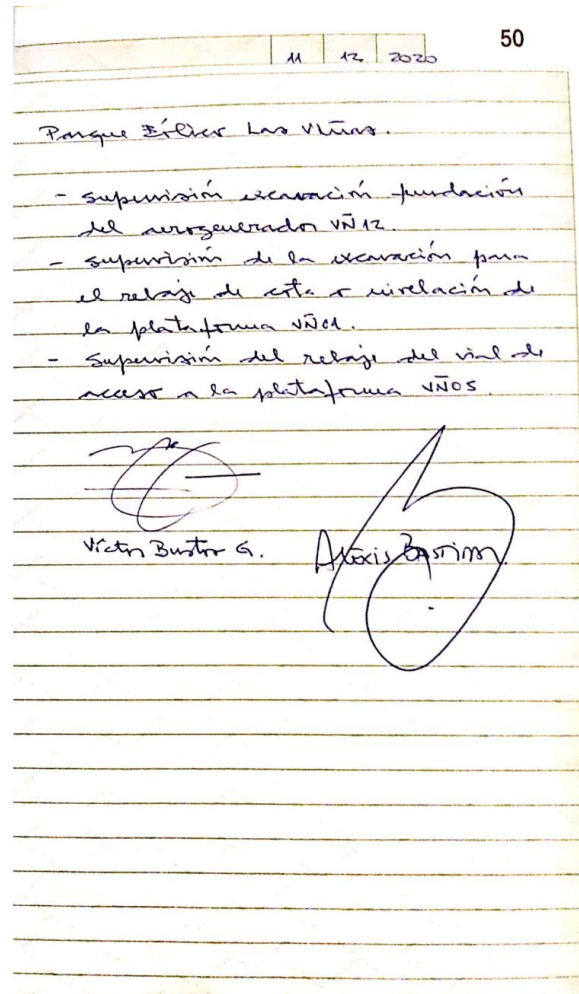 50
11 12 2020
Parque Eólico Las Viñas.
- Supervisión excavación fundación
del aerogenerador VÑ12.
- Supervisión de la excavación para
el rebaje de cota o nivelación de
la plataforma VÑ01.
- Supervisión del rebaje del vial de
acceso a la plataforma VÑ05.
Víctor Bustos G. Alexis